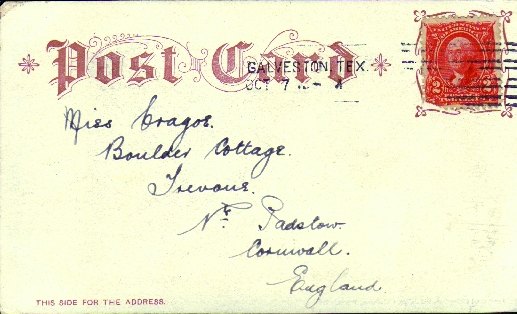 Post Card
GALVESTON, TEX.
OCT 7
Miss Cragoe.
Boulder Cottage.
Trevone.
Nr. Padstow.
Cornwall.
England.
THIS SIDE FOR THE ADDRESS.